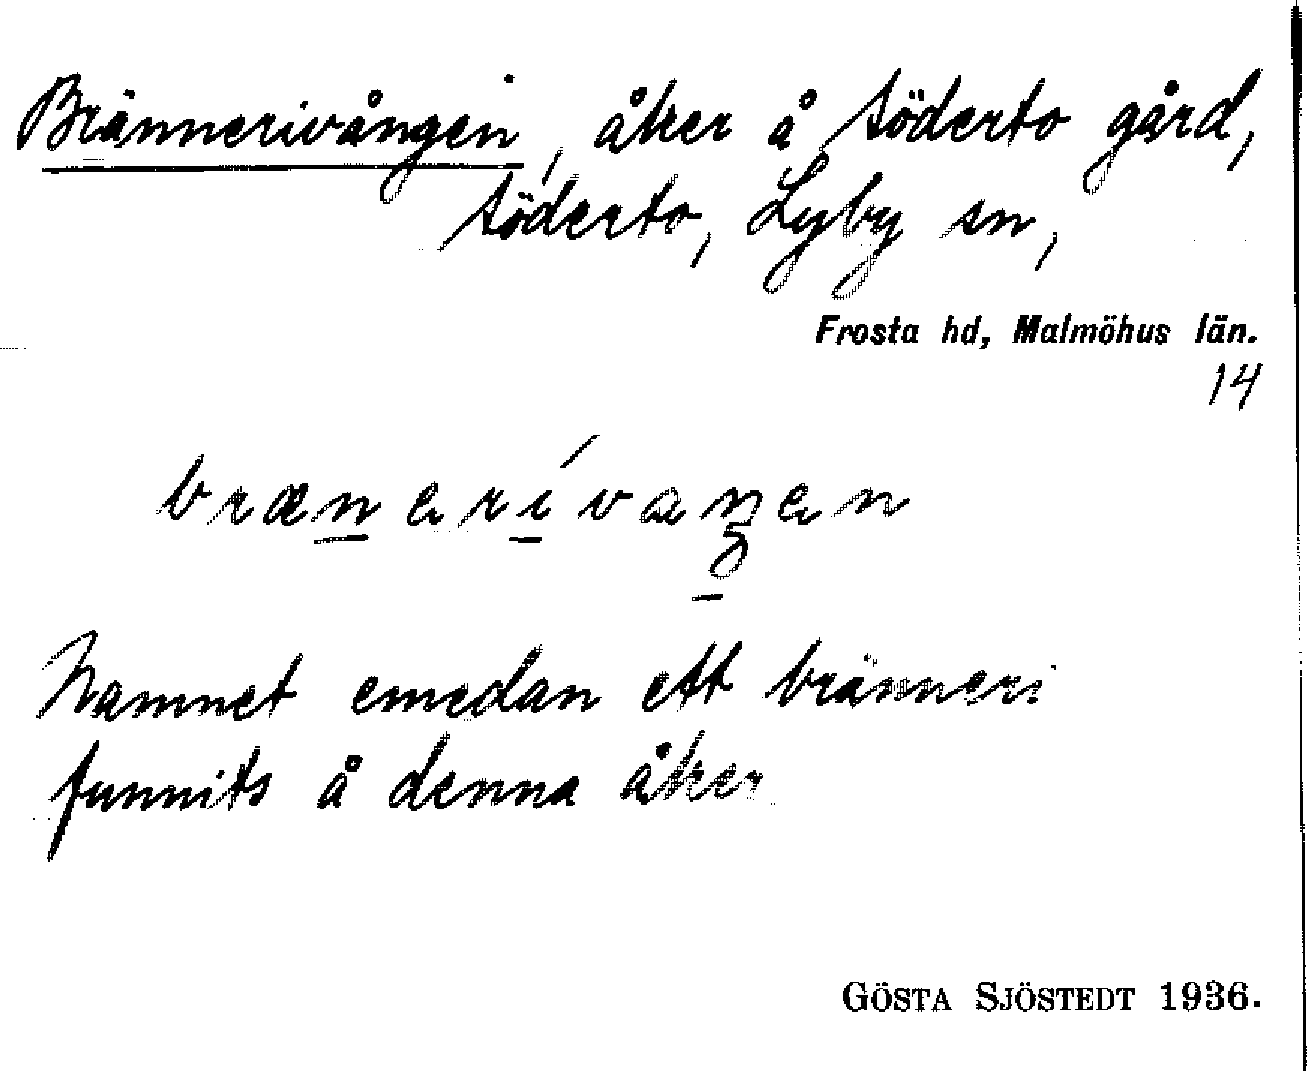 Brännerivången, åker å Söderto gård,
Söderto, Lyby sn,
Frosta hd, Malmöhus län.
14
brænerívaŋen
Namnet emedan ett bränneri
funnits å denna åker
GÖSTA SJÖSTEDT 1936.